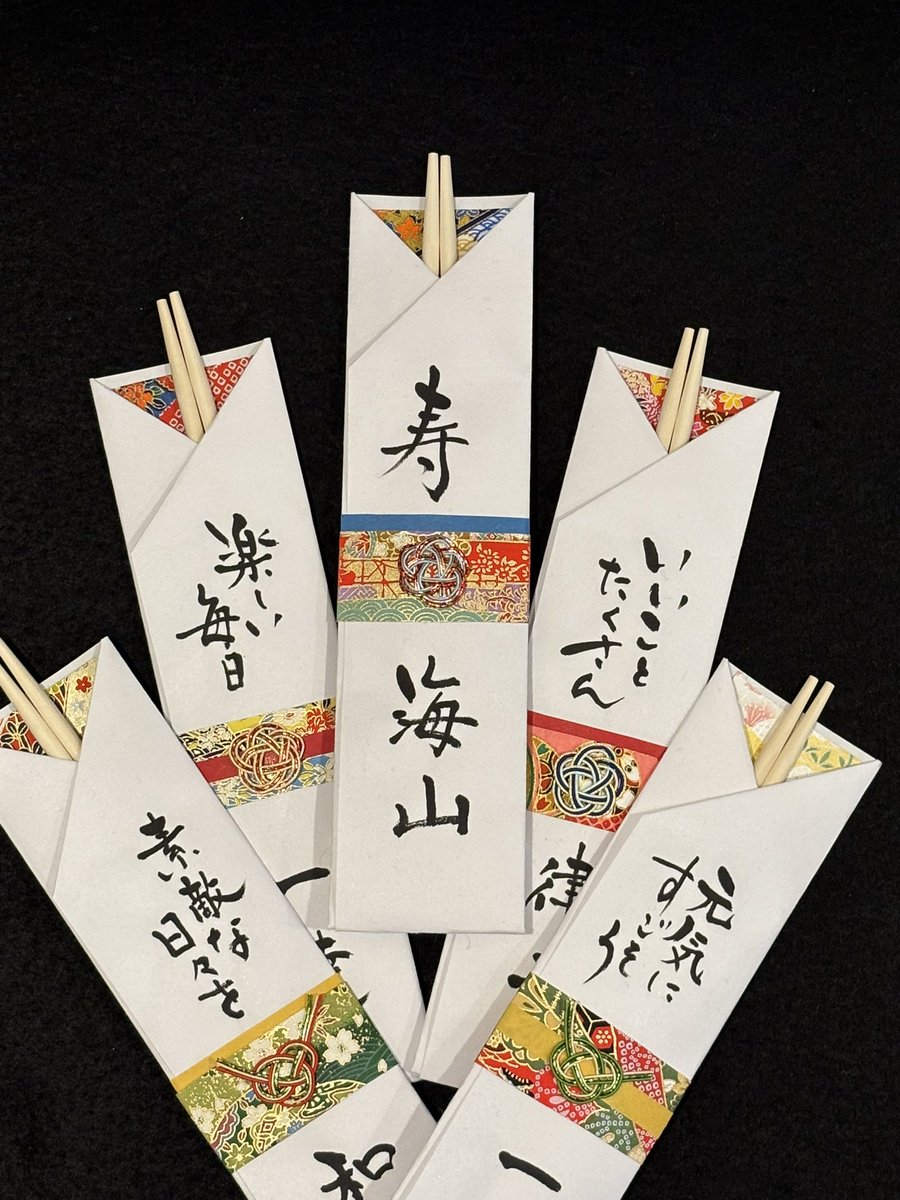 寿
海山
楽しい
毎日
一
いいこと
たくさん
律
素敵な
日々を
和
元気に
すごそう
一